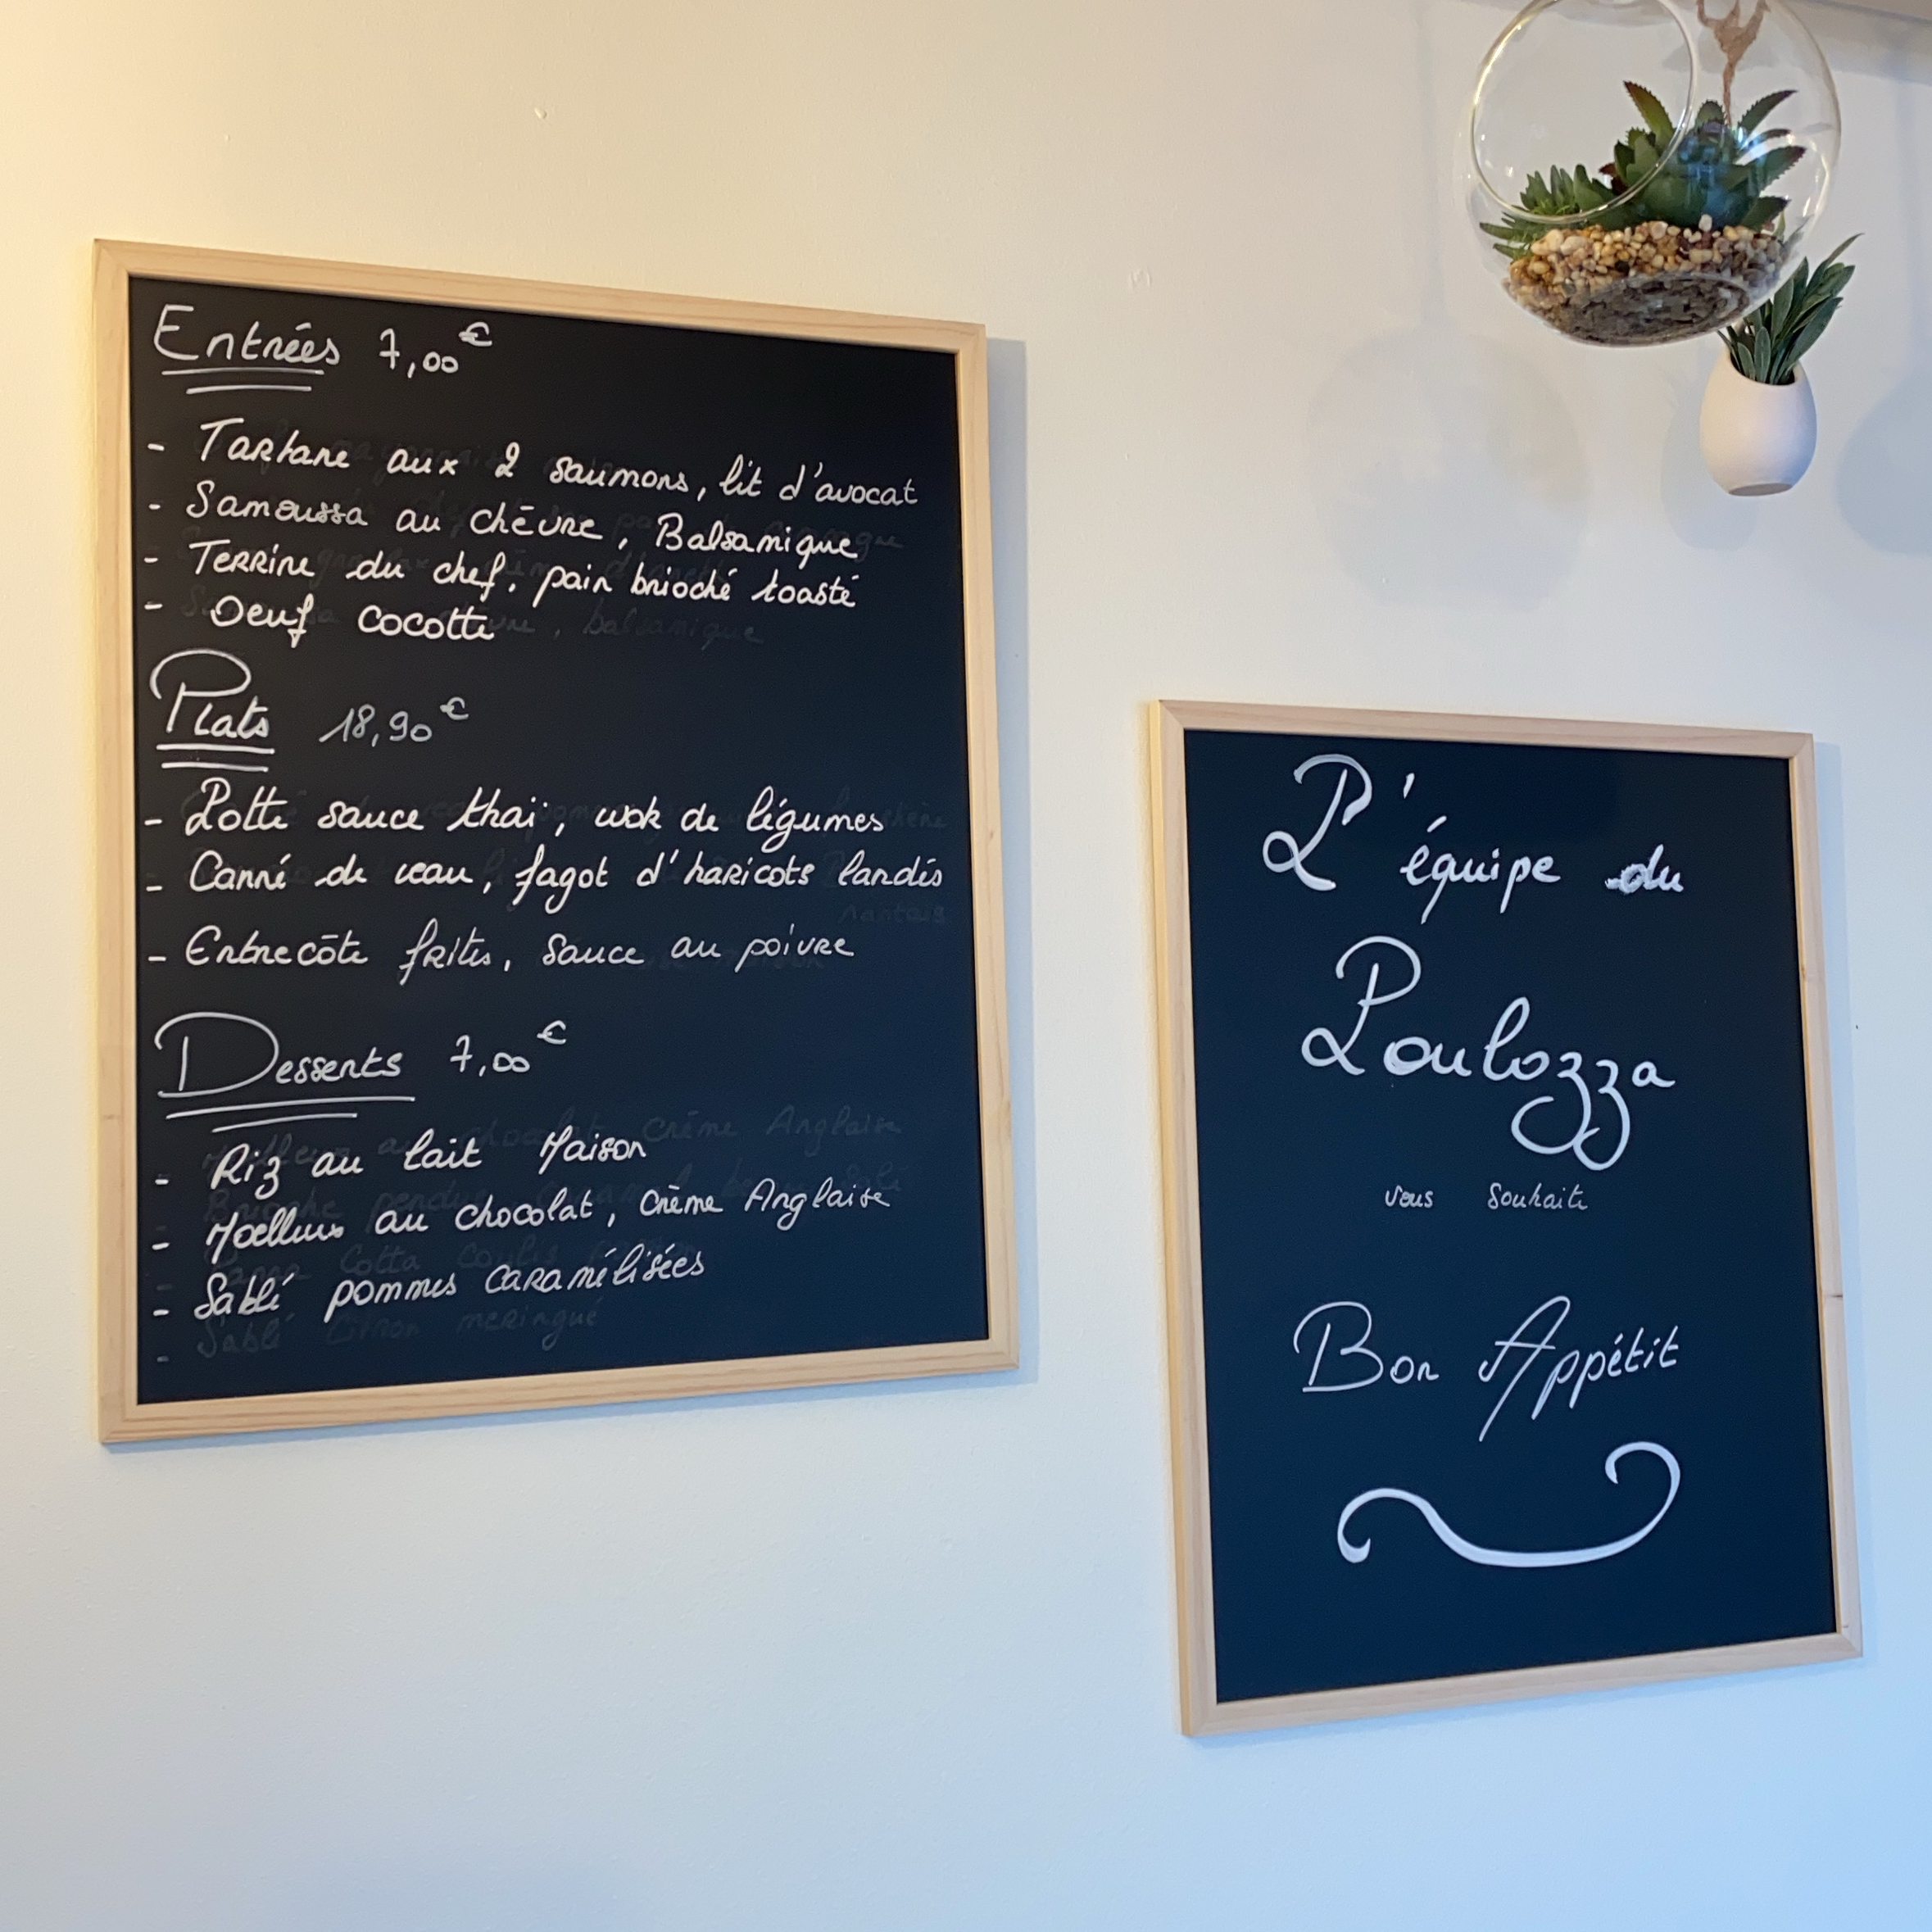 Entrées 7,00€
- Tartare aux 2 saumons, lit d'avocat
- Samoussa au chèvre, Balsamique
- Terrine du chef, pain brioché toasté
- Oeuf cocotte
Plats 18,90€
- Lotte sauce thaï, wok de légumes
- Carré de veau, fagot d'haricots lardés
- Entrecôte frites, sauce au poivre
Desserts 7,00€
- Riz au lait Maison
- Moelleux au chocolat, Crème Anglaise
- Sablé pommes caramélisées
Sablé citron meringué
L'équipe du
Loulozza
vous souhaite
Bon Appétit